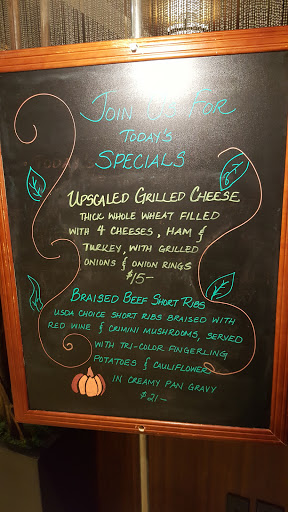 JOIN US FOR
TODAY'S
SPECIALS
UPSCALED GRILLED CHEESE
THICK WHOLE WHEAT FILLED
WITH 4 CHEESES, HAM &
TURKEY, WITH GRILLED
ONIONS & ONION RINGS
$15-
BRAISED BEEF SHORT RIBS
USDA CHOICE SHORT RIBS BRAISED WITH
RED WINE & CRIMINI MUSHROOMS, SERVED
WITH TRI-COLOR FINGERLING
POTATOES & CAULIFLOWER
IN CREAMY PAN GRAVY
$21-